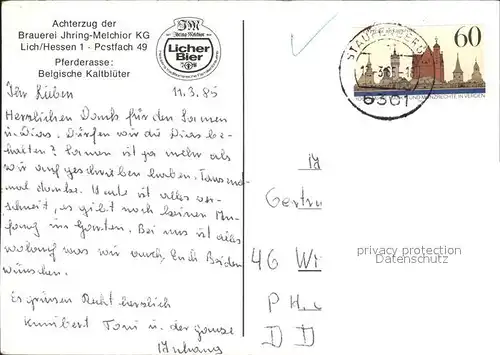 Achterzug der
Brauerei Jhring-Melchior KG
Lich/Hessen 1 - Postfach 49
Pferderasse:
Belgische Kaltblüter
JM
Jhring-Melchior
Licher
Bier
60
6301
Ihr Lieben
11.3.85
Herzlichen Dank für den Samen
u. Dias. Dürfen wir die Dias be-
halten? Samen ist ja mehr als
wir aufgeschrieben haben. Tausend-
mal danke. Heute ist alles ver-
schneit, es gibt noch keinen An-
fang im Garten. Bei uns ist alles
wohlauf was wir auch Euch Beiden
wünschen.
Es grüssen Recht herzlich
Kunibert Toni u. der ganze
Anhang
Gertru
46 Wi
P H
D D
privacy protection
Datenschutz